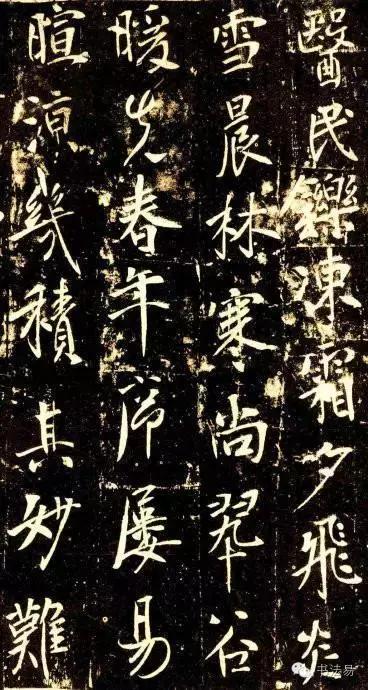 醫民鑠凍霜夕飛炎
雪晨林寒尚翠谷
暖先春年屢易
暄涼幾積其妙難
书法易